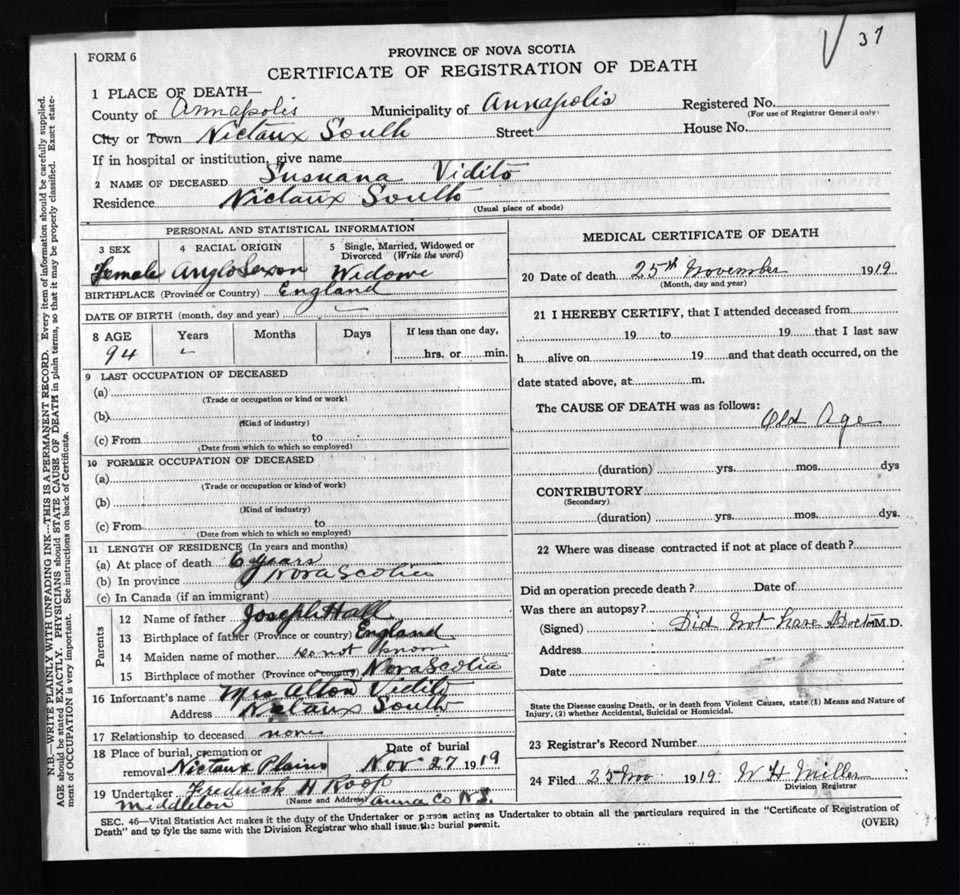 37
FORM 6
PROVINCE OF NOVA SCOTIA
CERTIFICATE OF REGISTRATION OF DEATH
1 PLACE OF DEATH—
County of Annapolis Municipality of Annapolis Registered No.
(For use of Registrar General only)
City or Town Nictaux South Street House No.
If in hospital or institution, give name
2 NAME OF DECEASED Susuana Vidito
Residence Nictaux South
(Usual place of abode)
PERSONAL AND STATISTICAL INFORMATION
3 SEX 4 RACIAL ORIGIN 5 Single, Married, Widowed or Divorced (Write the word)
Female Anglo Saxon Widowe
BIRTHPLACE (Province or Country) England
DATE OF BIRTH (month, day and year)
8 AGE Years Months Days If less than one day,
94 hrs. or min.
9 LAST OCCUPATION OF DECEASED
(a)
(Trade or occupation or kind or work)
(b)
(Kind of industry)
(c) From to
(Date from which to which so employed)
10 FORMER OCCUPATION OF DECEASED
(a)
(Trade or occupation or kind of work)
(b)
(Kind of industry)
(c) From to
(Date from which to which so employed)
11 LENGTH OF RESIDENCE (In years and months)
(a) At place of death 6 years
(b) In province Nova Scotia
(c) In Canada (if an immigrant)
Parents
12 Name of father Joseph Hall
13 Birthplace of father (Province or country) England
14 Maiden name of mother do not know
15 Birthplace of mother (Province or country) Nova Scotia
16 Informant's name Mrs Alton Vidito
Address Nictaux South
17 Relationship to deceased none
18 Place of burial, cremation or removal Nictaux Plains Date of burial Nov 27 1919
19 Undertaker Frederick H Roop
Middleton (Name and Address) Anna Co N.S.
MEDICAL CERTIFICATE OF DEATH
20 Date of death 25th November 1919
(Month, day and year)
21 I HEREBY CERTIFY, that I attended deceased from
19 to 19 that I last saw
h alive on 19 and that death occurred, on the
date stated above, at m.
The CAUSE OF DEATH was as follows:
Old Age
(duration) yrs. mos. dys
CONTRIBUTORY
(Secondary)
(duration) yrs. mos. dys.
22 Where was disease contracted if not at place of death?
Did an operation precede death? Date of
Was there an autopsy?
(Signed) Did not have Doctor M.D.
Address
Date
State the Disease causing Death, or in death from Violent Causes, state (1) Means and Nature of
Injury, (2) whether Accidental, Suicidal or Homicidal.
23 Registrar's Record Number
24 Filed 25 Nov 1919 W H Miller
Division Registrar
SEC. 46—Vital Statistics Act makes it the duty of the Undertaker or person acting as Undertaker to obtain all the particulars required in the "Certificate of Registration of
Death" and to fyle the same with the Division Registrar who shall issue the burial permit. (OVER)
N.B.—WRITE PLAINLY WITH UNFADING INK—THIS IS A PERMANENT RECORD. Every item of information should be carefully supplied.
AGE should be stated EXACTLY. PHYSICIANS should STATE CAUSE OF DEATH in plain terms, so that it may be properly classified. Exact state-
ment of OCCUPATION is very important. See instructions on back of Certificate.